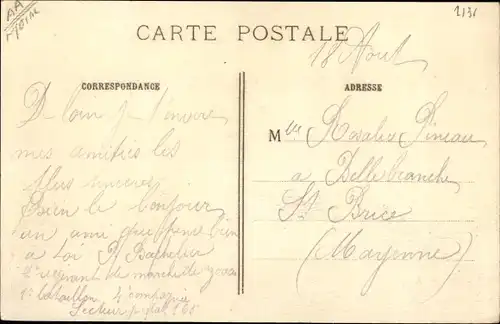 AA
2131
CARTE POSTALE
18 Aout
CORRESPONDANCE
De loin je t'envoie
mes amitiés les
plus sincères
Bien le bonjour
un ami qui pense bien
a toi P
2e regiment de marche de
1e bataillon 4e compagnie
Secteur postal 165
ADRESSE
Mlle Rosalie Pineau
a Bellebranche
St Brice
(Mayenne)